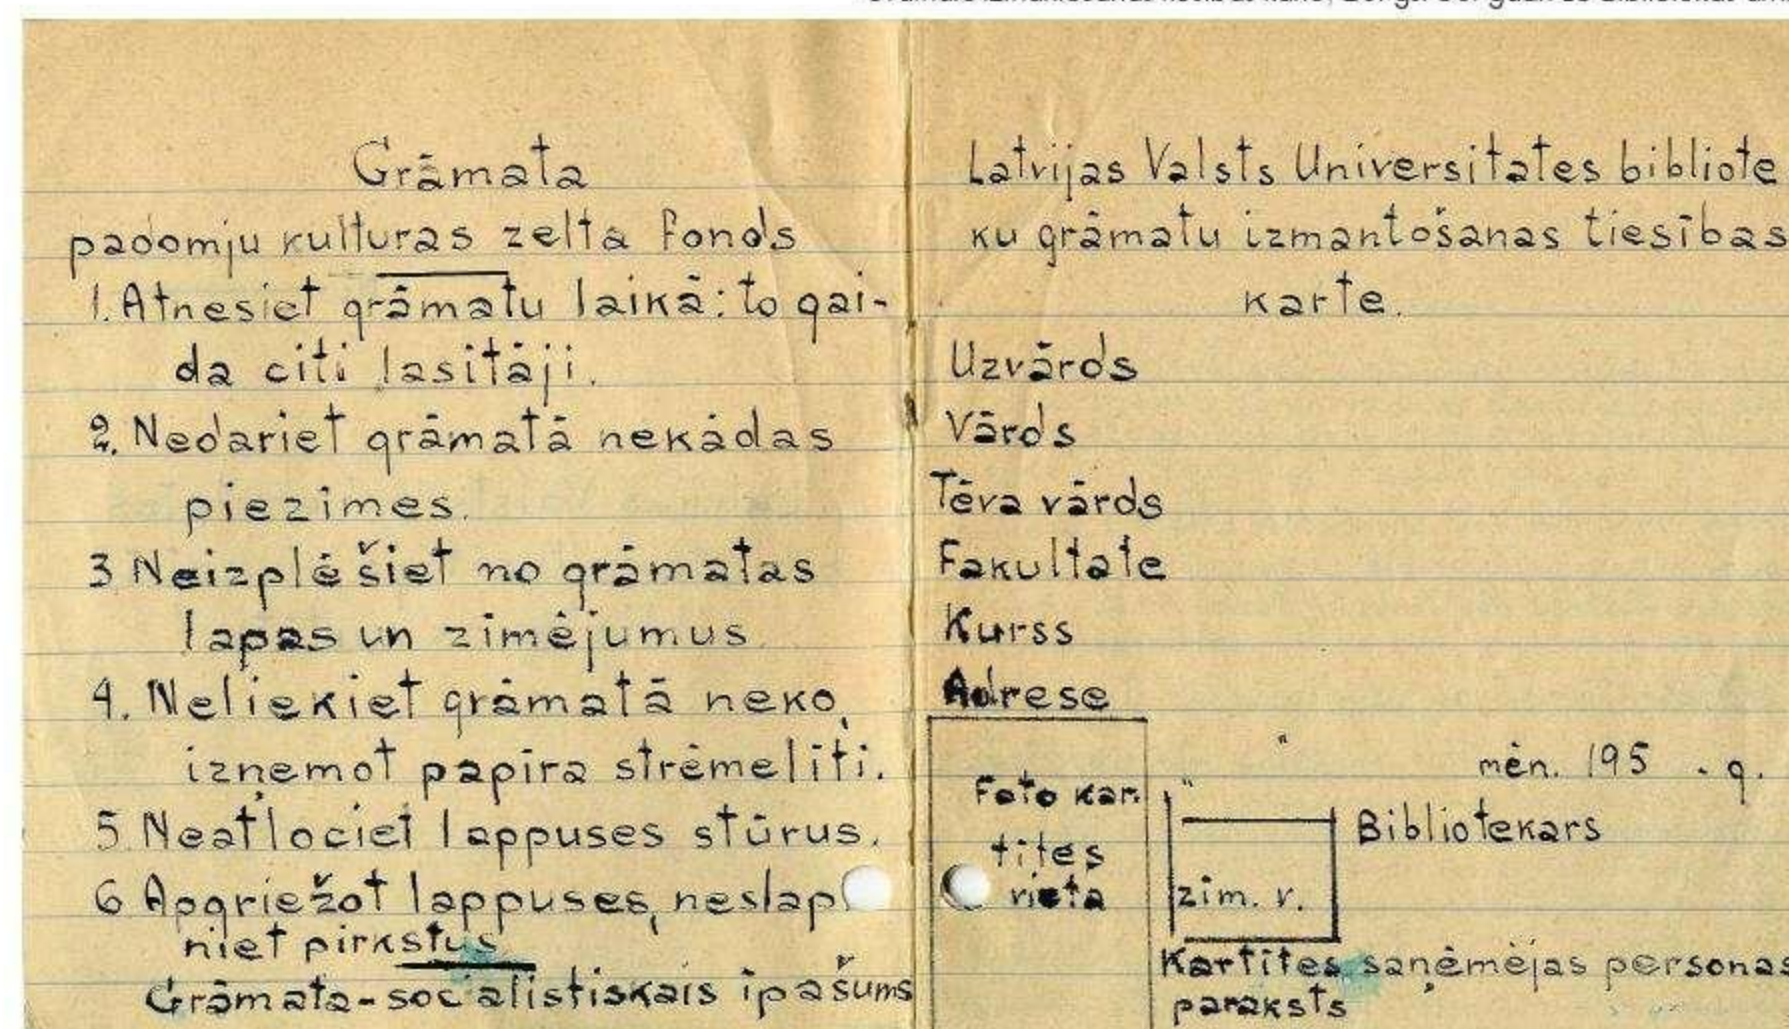 Grāmata
padomju kulturas zelta fonds
1. Atnesiet grāmatu laikā: to gai-
da citi lasitāji.
2. Nedariet grāmatā nekādas
piezīmes.
3 Neizplēšiet no grāmatas
lapas un zimējumus.
4. Neliekiet grāmatā neko,
izņemot papīra strēmelīti.
5. Neatlociet lappuses stūrus.
6 Apgriežot lappuses, neslap
niet pirkstus
Grāmata-socialistiskais īpašums
Latvijas Valsts Universitates bibliote
ku grāmatu izmantošanas tiesības
karte.
Uzvārds
Vārds
Tēva vārds
Fakultate
Kurss
Adrese
Foto kar
tītes
vieta
" " mēn. 195 . g.
Bibliotekars
zim. v.
Kartītes saņēmējas personas
paraksts